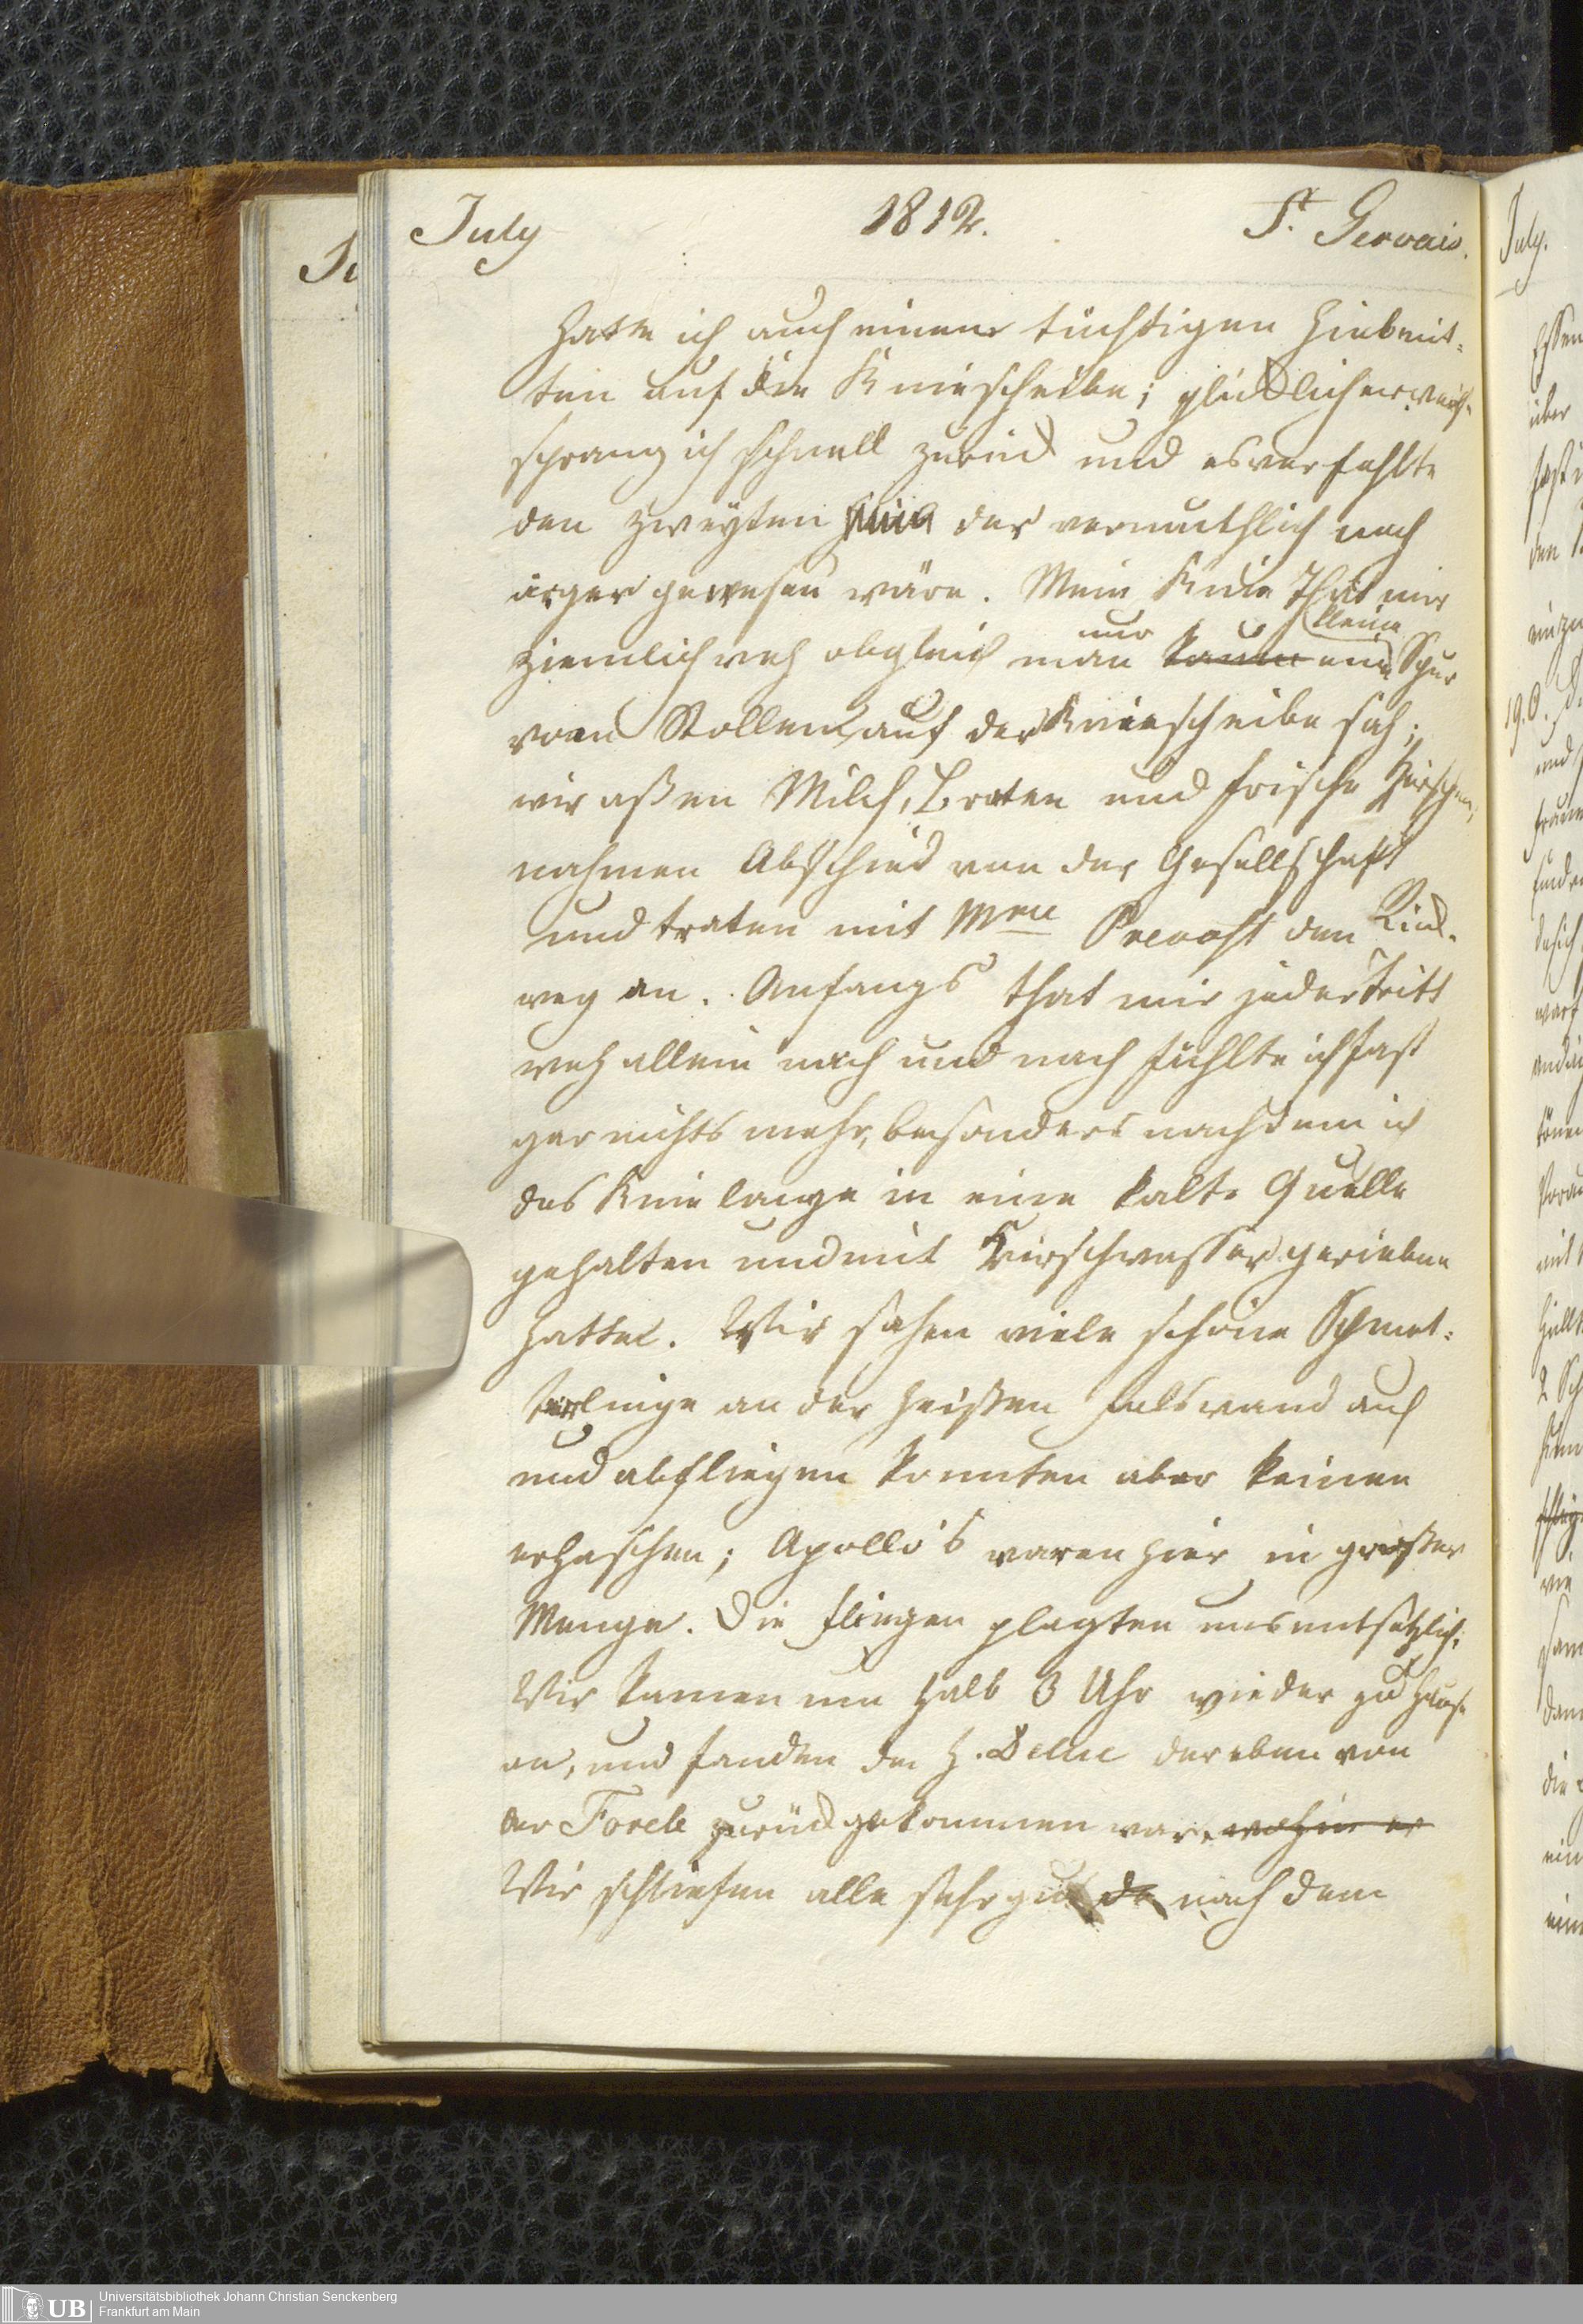 July 1812. St. Gervais.
hatte ich auch einen tüchtigen Hieb mit=
ten auf die Kniescheibe; glücklicherweise
sprang ich schnell zurück und es verfehlte
den zweyten der vermuthlich noch
ärger gewesen wäre. Mein Knie that mir
ziemlich weh obgleich man nur kaum eine kleine Spur
vom Stollen auf der Kniescheibe sah;
wir aßen Milch, Braten und frische Kirschen,
nahmen Abschied von der Gesellschaft
und traten mit Prevost den Rück=
weg an. Anfangs that mir jeder Tritt
weh allein nach und nach fühlte ich fast
gar nichts mehr, besonders nachdem ich
das Knie lange in eine kalte Quelle
gehalten und mit Kirschwasser gerieben
hatte. Wir sahen viele schöne Schmet=
terlinge an der heißen Felswand auf
und abfliegen konnten aber keinen
erhaschen; Apollo's waren hier in großer
Menge. Die Fliegen plagten uns entsetzlich.
Wir kamen um halb 3 Uhr wieder zu Hause
an, und fanden den H. Deluc der eben von
der Forcle zurückgekommen war, wohin er
Wir schliefen alle sehr gut da nach dem
July.
19.
Universitätsbibliothek Johann Christian Senckenberg
UB
Frankfurt am Main